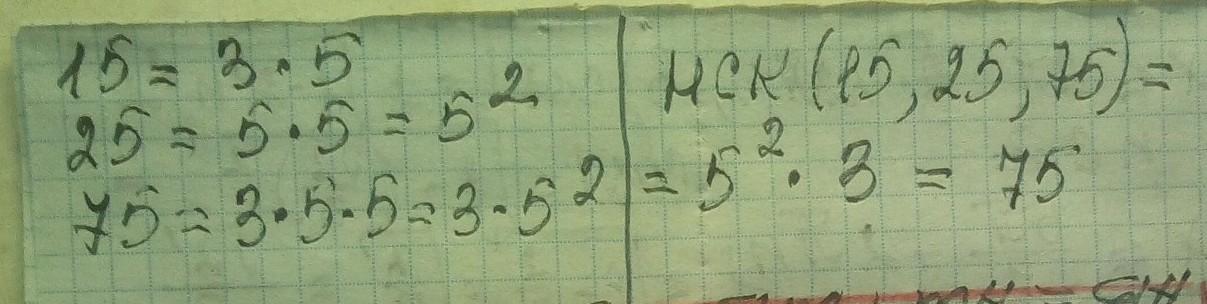 15 = 3 · 5
25 = 5 · 5 = 5²
75 = 3 · 5 · 5 = 3 · 5²
НСК (15, 25, 75) =
= 5² · 3 = 75